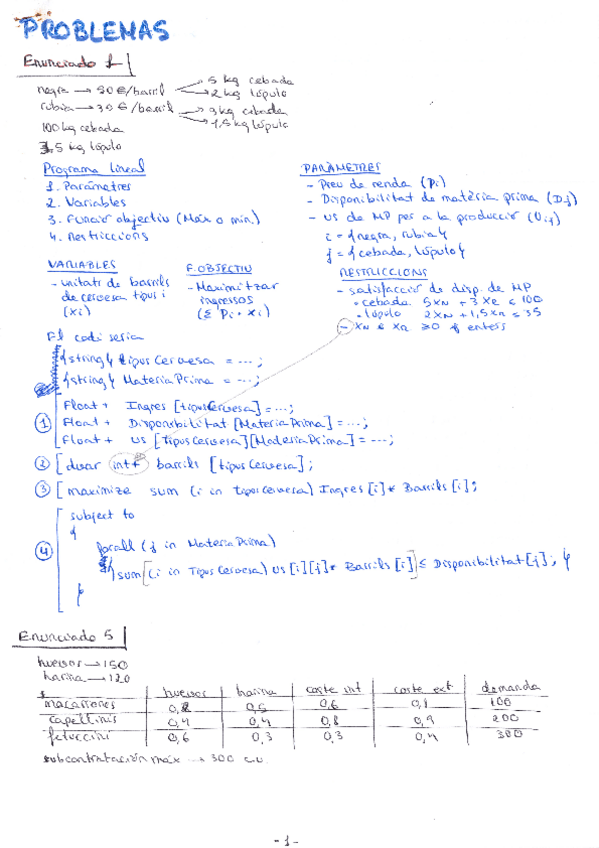 PROBLEMAS
Enunciado 1
negra → 50€/barril → 5 kg cebada
→ 2 kg lúpulo
rubia → 30€/barril → 3 kg cebada
→ 1,5 kg lúpulo
100 kg cebada
35 kg lúpulo
Programa lineal
1. Paràmetres
2. Variables
3. Funció objectiu (Màx o min.)
4. Restriccions
PARÀMETRES
- Preu de venda (Pi)
- Disponibilitat de matèria prima (Dj)
- us de MP per a la producció (Uij)
i = {negra, rubia}
j = {cebada, lúpulo}
VARIABLES
- unitats de barrils
de cervesa tipus i
(xi)
F. OBJECTIU
- Maximitzar
ingressos
(Σ Pi · xi)
RESTRICCIONS
- satisfacció de disp. de MP
• cebada 5XN + 3XR ≤ 100
• lúpulo 2XN + 1,5XR ≤ 35
- XN & XR ≥ 0 & enters
El codi seria
{string} tipus Cervesa = ...;
{string} Materia Prima = ...;
① Float + Ingres [tipusCervesa] = ...;
Float + Disponibilitat [MateriaPrima] = ...;
Float + us [tipusCervesa][MateriaPrima] = ...;
② [dvar int+ barrils [tipusCervesa];
③ [maximize sum (i in tipusCervesa) Ingres[i] * Barrils[i];
④ subject to
{
forall (j in MateriaPrima)
{sum (i in TipusCervesa) us[i][j] * Barrils[i] ≤ Disponibilitat[j]; }
}
Enunciado 5
huevos → 150
harina → 120
huevos harina coste int coste ext demanda
macarrones 0,5 0,6 100
capellinis 0,4 0,4 0,8 0,9 200
fetuccini 0,6 0,3 0,3 0,4 300
subcontratación máx → 300 c.u.
- 1 -